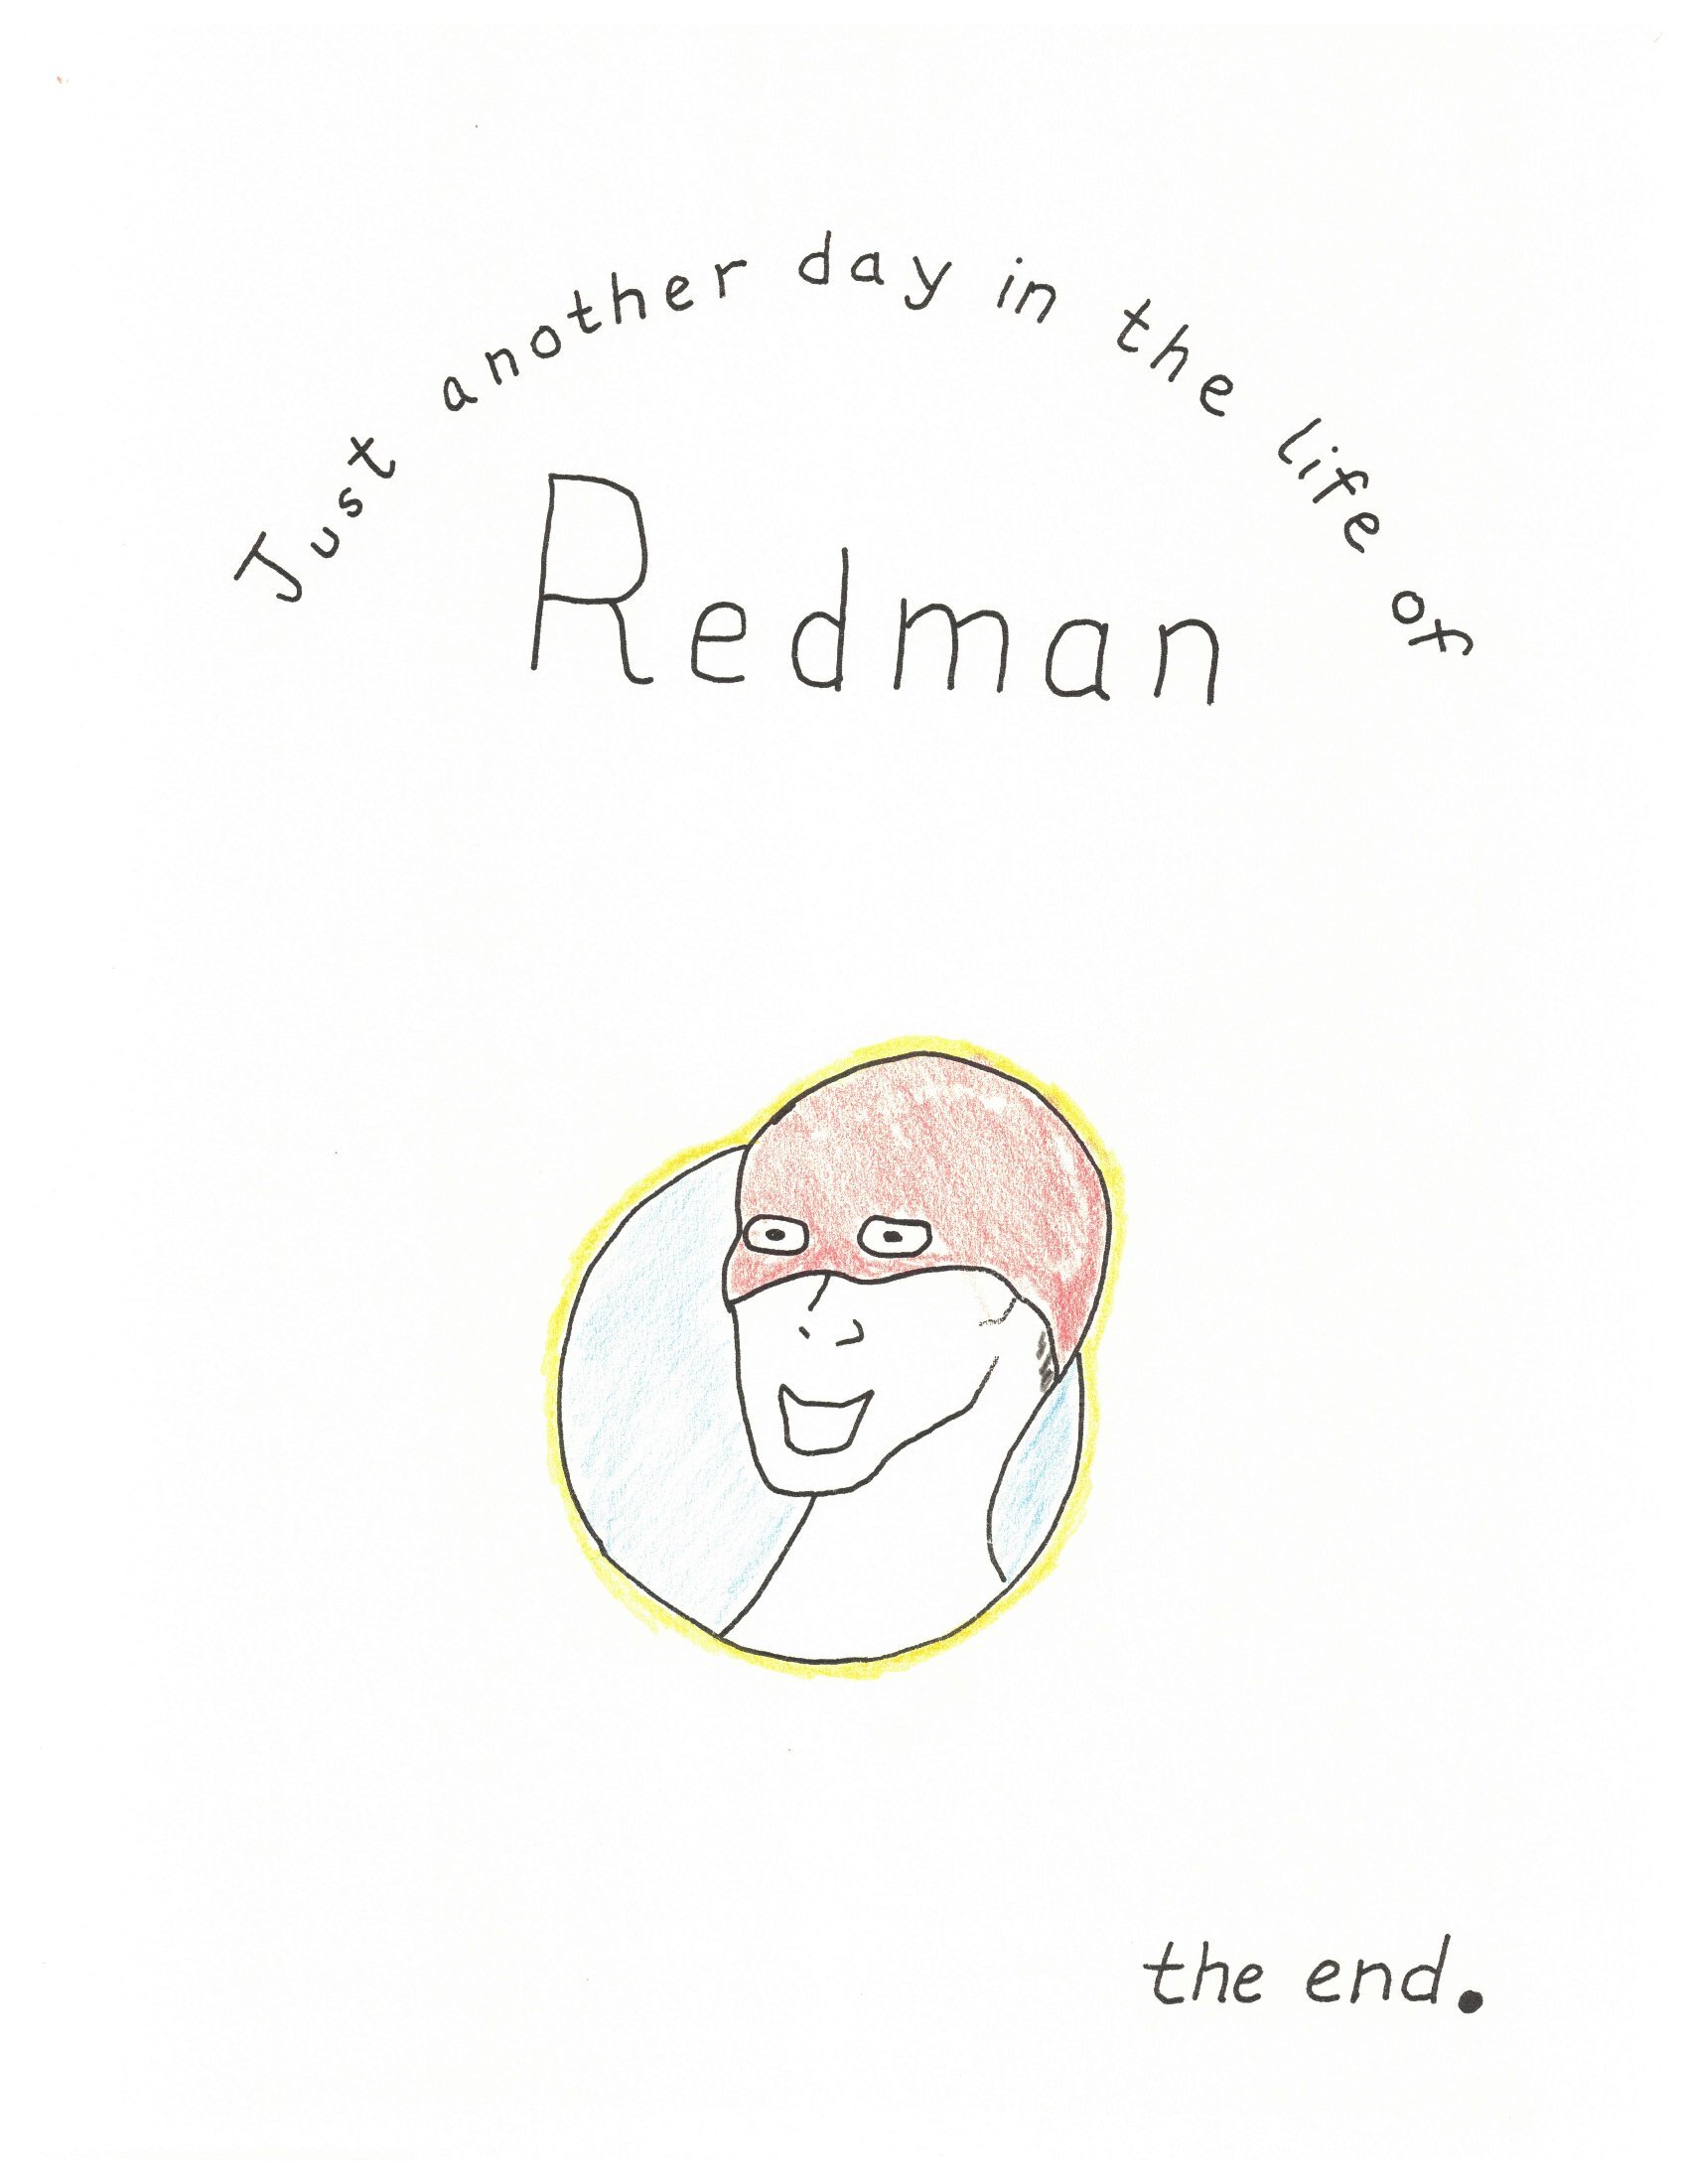 Just another day in the life of
Redman
the end.